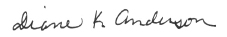 Diane K Anderson